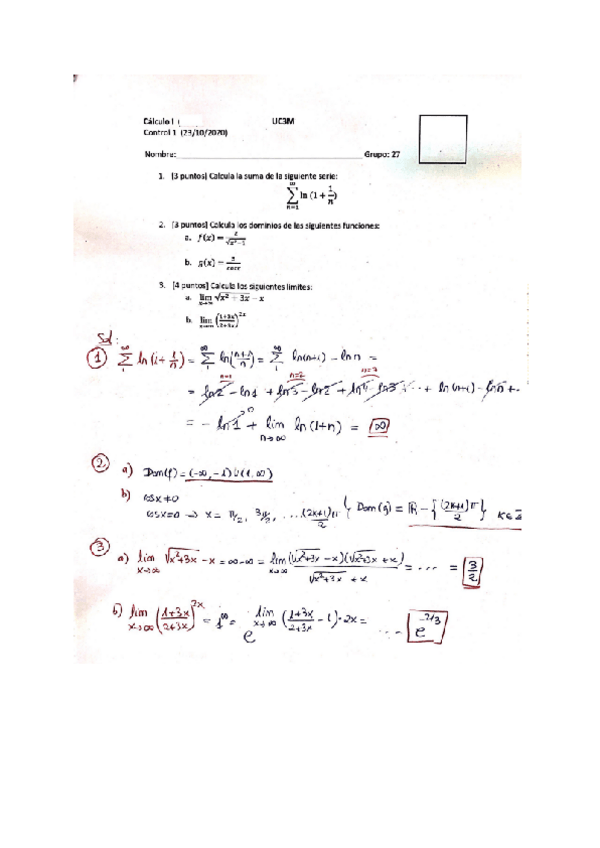 Cálculo I (
UC3M
Control 1 (23/10/2020)
Nombre:____________________ Grupo: 27
1. [3 puntos] Calcula la suma de la siguiente serie:
∑_{n=1}^{∞} ln (1 + 1/n)
2. [3 puntos] Calcula los dominios de las siguientes funciones:
a. f(x) = x/√(x²−1)
b. g(x) = 2/cosx
3. [4 puntos] Calcula los siguientes límites:
a. lim_{x→∞} √(x² + 3x) − x
b. lim_{x→∞} ((1+3x)/(2+3x))^{2x}
Sol:
① ∑_{1}^{∞} ln(1+1/n) = ∑_{1}^{∞} ln((n+1)/n) = ∑_{1}^{∞} ln(n+1) − ln n =
n=1 n=2 n=3
= ln2 − ln1 + ln3 − ln2 + ln4 − ln3 + ... + ln(n+1) − ln n + ..
= − ln1 + lim_{n→∞} ln(1+n) = ∞
0
② a) Dom(f) = (−∞, −1) ∪ (1, ∞)
b) cosx ≠ 0
cosx=0 → x = π/2, 3π/2, ... (2k+1)π/2 { Dom(g) = ℝ − {(2k+1)π/2} k∈ℤ
③ a) lim_{x→∞} √(x²+3x) − x = ∞−∞ = lim_{x→∞} (√(x²+3x) − x)(√(x²+3x) + x)/(√(x²+3x) + x) = .... = 3/2
b) lim_{x→∞} ((1+3x)/(2+3x))^{2x} = 1^∞ = e^{lim_{x→∞} ((1+3x)/(2+3x) − 1)·2x} = ... e^{−2/3}